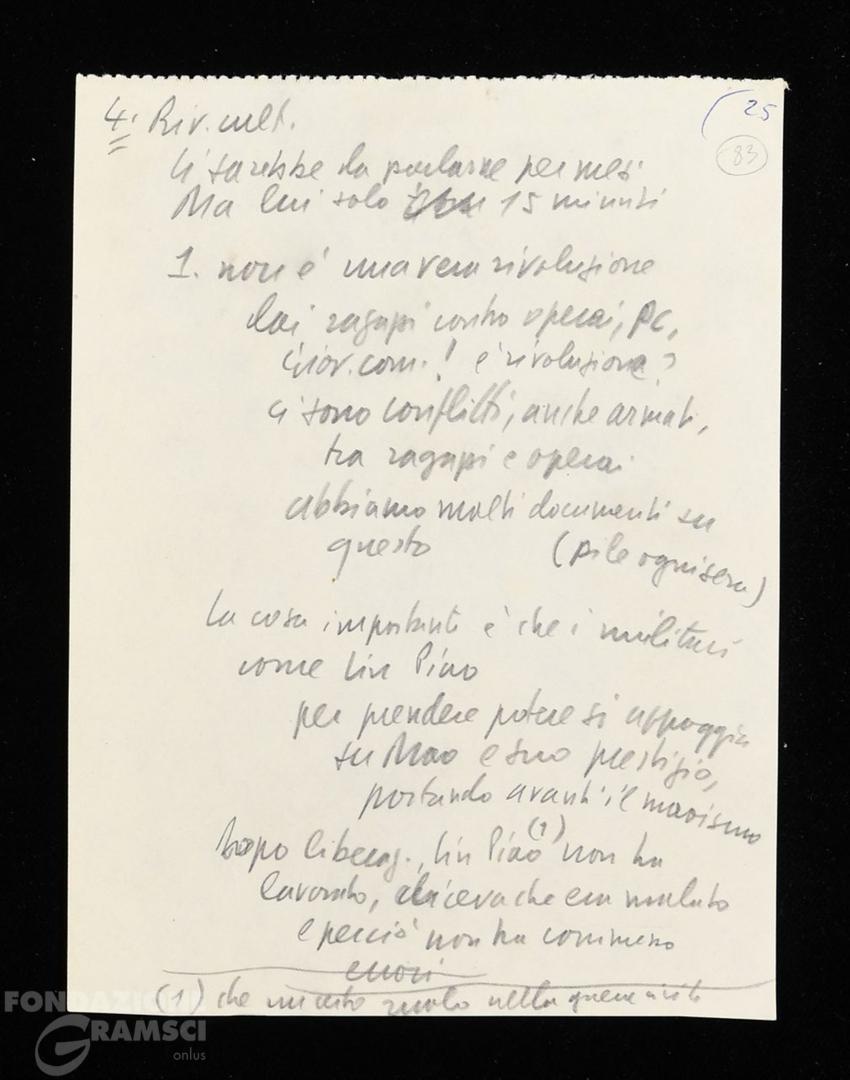 25
83
4. Riv. cult.
Ci sarebbe da parlarne per mesi
Ma lui solo 15 minuti
1. non è una vera rivoluzione
dai ragazzi contro operai, PC,
Giov. com.! è rivoluzione?
ci sono conflitti, anche armati,
tra ragazzi e operai
abbiamo molti documenti su
questo (pile ogni sera)
La cosa importante è che i militari
come Lin Piao
per prendere potere si appoggia
su Mao e suo prestigio,
portando avanti il maoismo
Dopo liberaz., Lin Piao (1) non ha
lavorato, diceva che era malato
e perciò non ha commesso
errori
(1) che ruolo nella guerra civile
FONDAZIONE
GRAMSCI
onlus